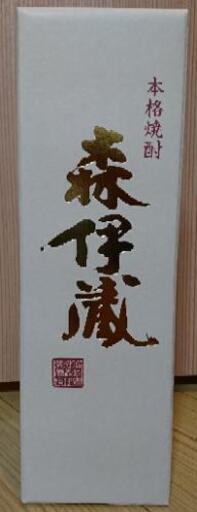 本格焼酎
森伊蔵